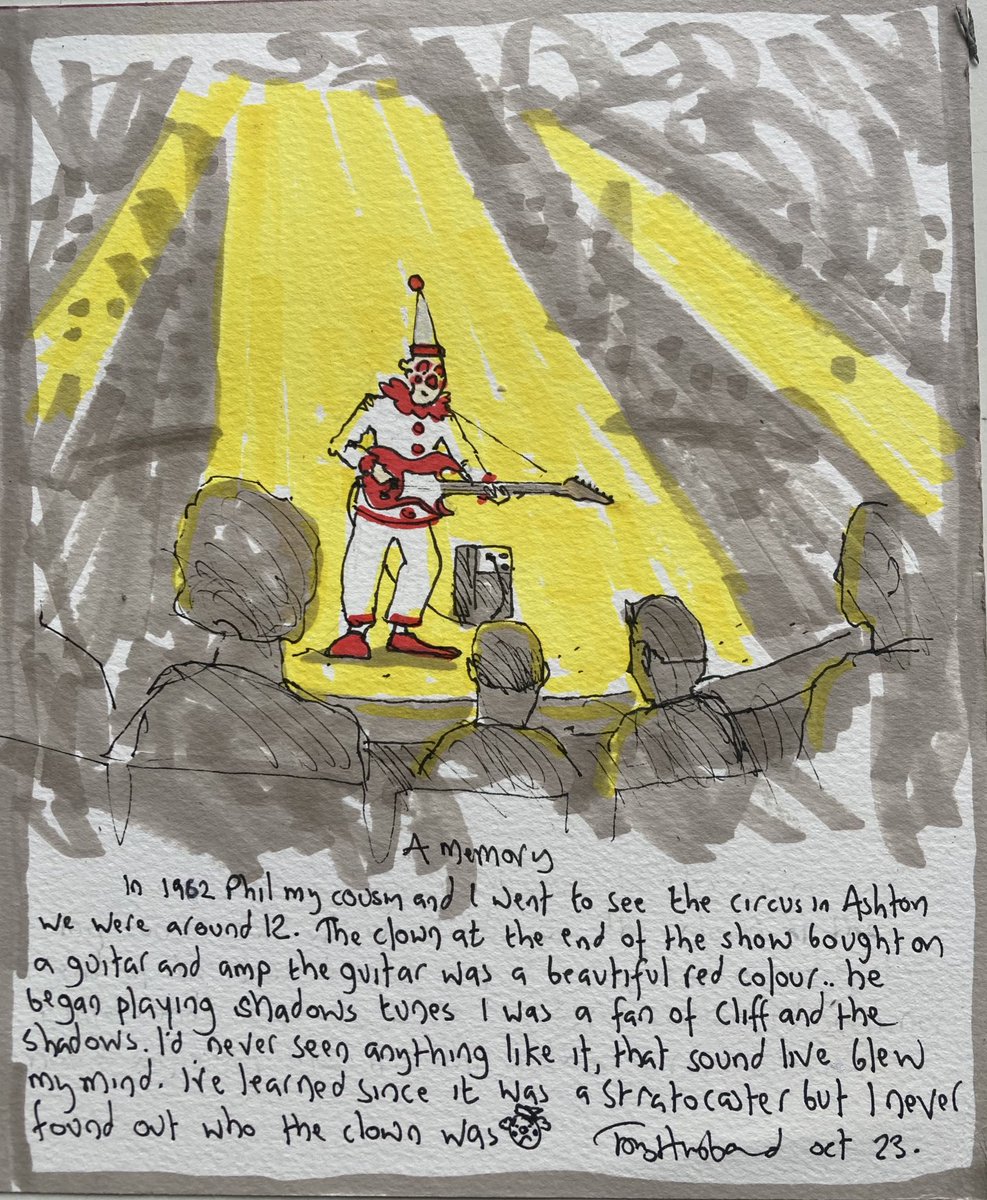 A memory
In 1962 Phil my cousin and I went to see the circus in Ashton
we were around 12. The clown at the end of the show bought on
a guitar and amp the guitar was a beautiful red colour.. he
began playing shadows tunes I was a fan of Cliff and the
shadows. I'd never seen anything like it, that sound live blew
my mind. I've learned since it was a stratocaster but I never
found out who the clown was
Tony Husband oct 23.